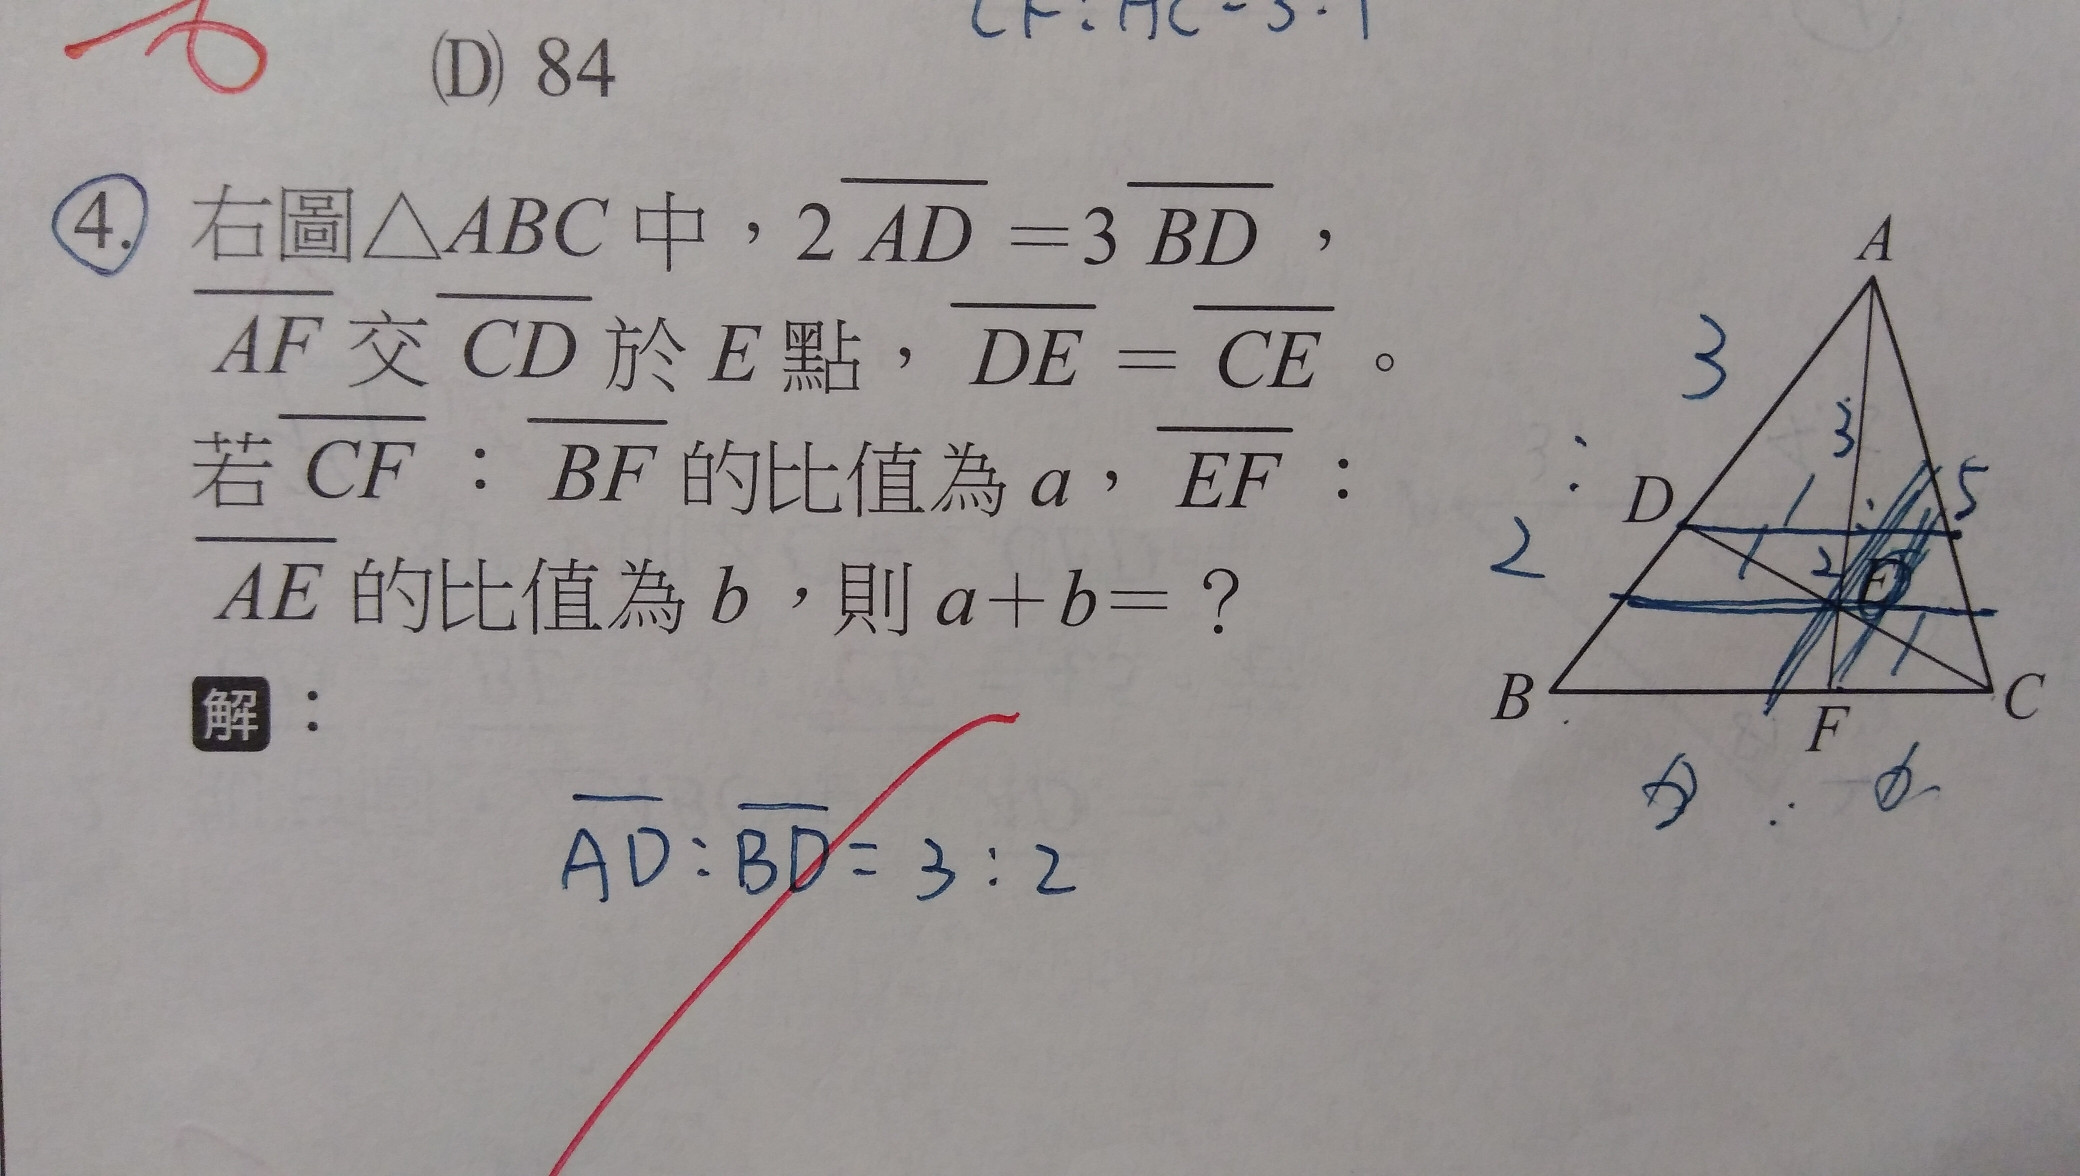 CF:AC=3:1
(D) 84
4. 右圖△ABC中，2 AD =3 BD ，
AF 交 CD 於 E 點， DE = CE 。
若 CF ： BF 的比值為 a， EF ：
AE 的比值為 b ，則 a+b=？
解：
AD:BD=3:2
A
3
3
:
D
5
2
2
E
B
F
C
: